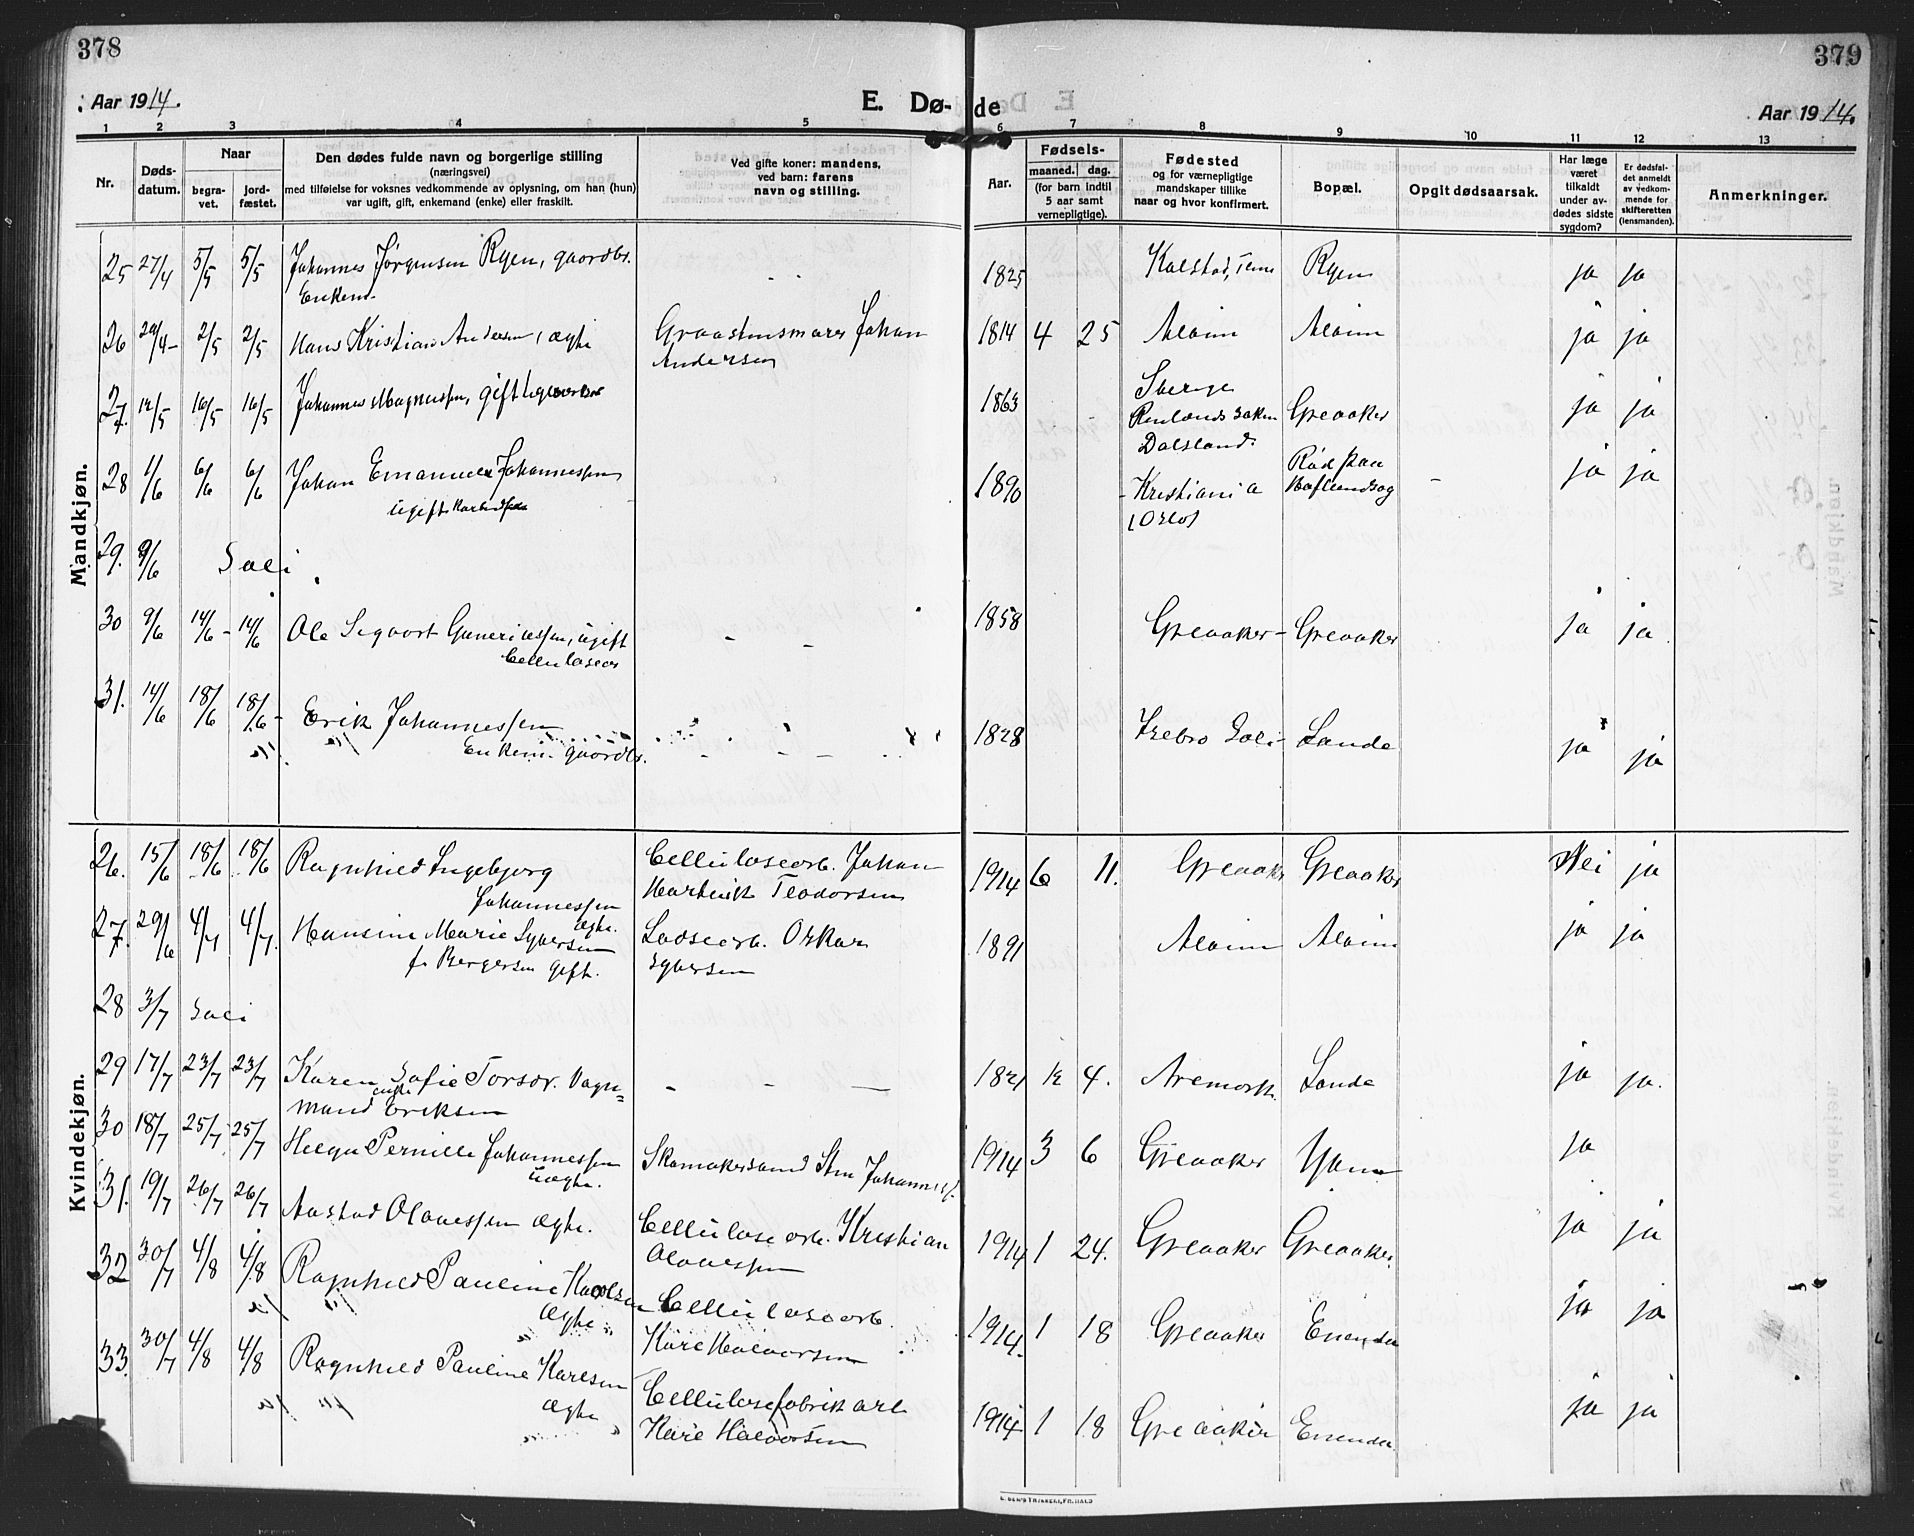 378
379
Aar 1914.
E. Dø-
de
Aar 1914.
1 2 3 4 5 6 7 8 9 10 11 12 13
Nr.
Døds-
datum.
Naar
begra-
vet.
jord-
fæstet.
Den dødes fulde navn og borgerlige stilling
(næringsvei)
med tilføielse for voksnes vedkommende av oplysning, om han (hun)
var ugift, gift, enkemand (enke) eller fraskilt.
Ved gifte koner: mandens,
ved barn: farens
navn og stilling.
Aar.
Fødsels-
maaned. dag.
(for barn indtil
5 aar samt
vernepligtige).
Fødested
og for værnepligtige
mandskaper tillike
naar og hvor konfirmert.
Bopæl.
Opgit dødsaarsak.
Har læge
været
tilkaldt
under av-
dødes sidste
sygdom?
Er dødsfal-
det anmeldt
av vedkom-
mende for
skifteretten
(lensmanden).
Anmerkninger.
Mandkjøn.
25 27/4 5/5 5/5 Johannes Jørgensen Ryen, gaardbr. 1825 Kalstad, Ryen ja ja
Enkem.
26 29/4 2/5 2/5 Hans Kristian Andersen, ægte Graastensmurer Johan 1814 4 25 Alvim Alvim ja ja
Andersen
27. 12/5 16/5 16/5 Johannes Magnussen, gift 1863 Sverige Greaaker ja ja
Dalsland.
28 1/6 6/6 6/6 Johan Emanuel Johannessen 1890 Kristiania Rød paa ja ja
ugift
(Oslo)
29. 9/6 Soli.
30 9/6 14/6 14/6 Ole Sigvart Guneriussen, ugift 1858 Greaaker Greaaker ja ja
Cellulosearb
31. 14/6 18/6 18/6 Erik Johannessen 1828 Soli Lande ja ja
Enkem. gaardbr.
Kvindekjøn.
26. 15/6 18/6 18/6 Ragnhild Ingebjørg Cellulosearb. Johan 1914 6 11. Greaaker Greaaker Nei ja
Johannessen Teodorsen
ægte.
27. 29/6 4/7 4/7 Hansine Marie Syversen Lodsearb. Oskar 1891 Alvim Alvim ja ja
f. Bergersen gift. Syversen
28 3/7 Soli
29 17/7 23/7 23/7 Karen Sofie Torsdr. Vogn= 1821 12 4. Aremark Lande ja ja.
mand Eriksen
30 18/7 25/7 25/7 Helga Pernille Johannessen Skomakersvend Johanness. 1914 3 6 Greaaker ja
uægte.
31. 19/7 26/7 26/7 Aastad Olavessen ægte. Cellulosearb. Kristian 1914 1 24. Greaaker Greaaker. ja ja
Olavessen
32 30/7 4/8 4/8 Ragnhild Pauline Karlsen Cellulosearb. 1914. 1 18 Greaaker Enenda ja ja
ægte Halvorsen
33. 30/7 4/8 4/8 Ragnhild Pauline Karlsen Cellulosefabrikarb 1914 1 18 Greaaker Enenda ja ja
ægte Halvorsen